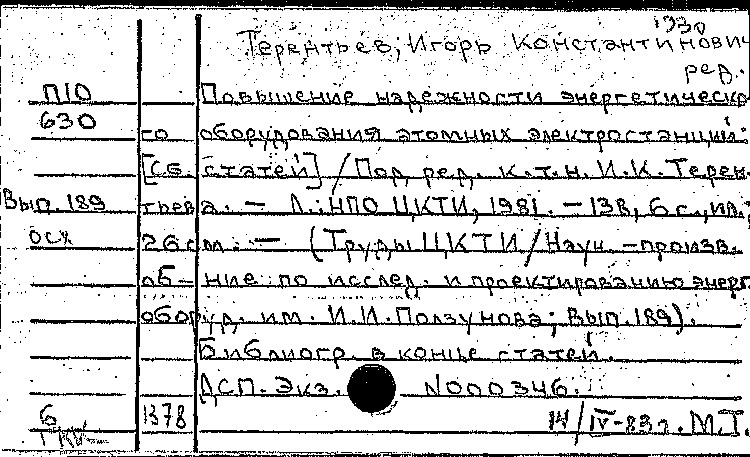 1930
Терентьев, Игорь Константинович
ред.
П10 Повышение надежности энергетическо
630 го оборудования атомных электростанций.
[Сб. статей] / Под ред. к.т.н. И.К. Терен-
Вып. 189 тьева. — Л.: НПО ЦКТИ, 1981. — 138, 6 с., ил.;
осх 26 см. — (Труды ЦКТИ / Науч.-произв.
об-ние по исслед. и проектированию энерг.
оборуд. им. И.И. Ползунова; Вып. 189).
Библиогр. в конце статей.
ДСП. Экз. N000346.
Б 1378 14/IV-83г. М.Т.